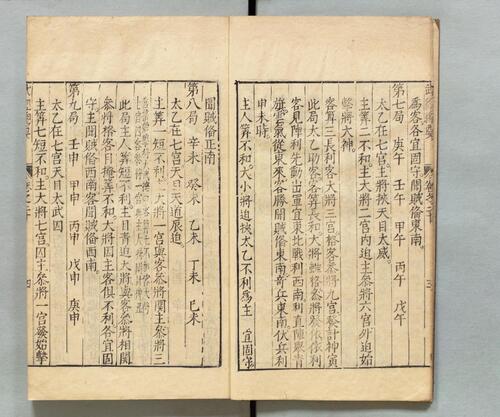 為客各宜固守關賊偹東南
第七局 庚午 壬午 甲午 丙午 戊午
太乙在七宮主將挾天目大威
主筭二不和主大將二宮內迫主參將六宮外迫始
擊將大神
客筭三長利客大將三宮客參將九宮發計神寅
此局大乙助客客筭長和大將
客見陣利先動出軍宜東北戰利西南利直陣聚青
旗雲氣從東來必勝關賊偹東南奇兵東南伏兵利
申未時
主人筭不和大小將迫挾太乙不利為主宜固守
關賊偹正南
第八局 辛未 癸未 乙未 丁未 己未
太乙在七宮天目天道辰迫
主筭一短不利主大將一宮與客參將關主參將三
此局主人筭短不利主目迫大將與客參將相關
參將格客目掩太乙不利大將囚主客俱不利各宜固
守主關賊偹西南客關賊偹西南
第九局 壬申 甲申 丙申 戊申 庚申
太乙在七宮天目太武囚
主筭七短不和主大將七宮囚主參將一宮發始擊